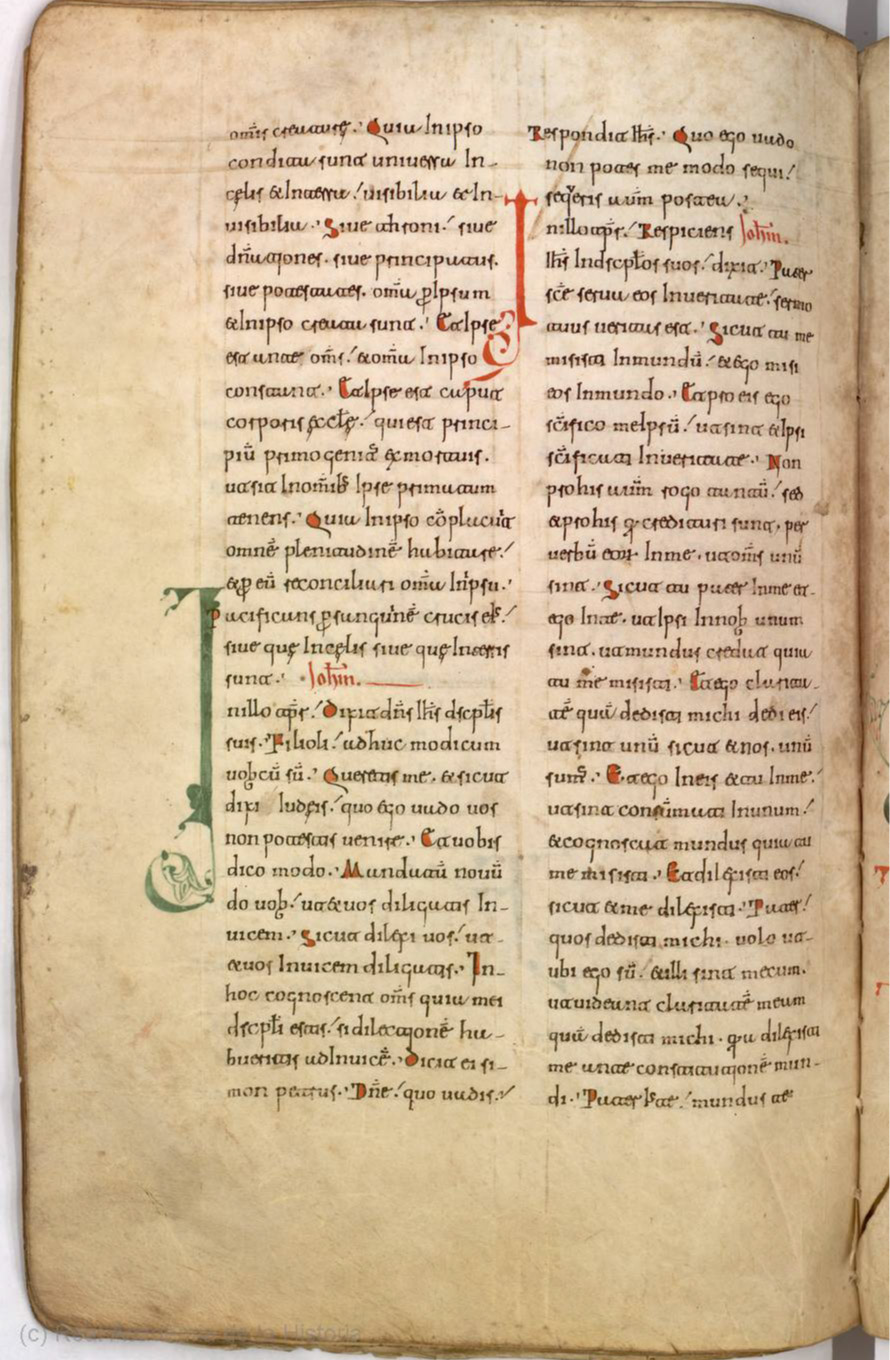 om̄is creaturę. Quia In ipso
condita sunt uniuersa In-
cęlis & In terra. uisibilia & In-
uisibilia. Siue throni. siue
dn̄ationes. siue principatus.
siue potestates. om̄ia ꝑ Ipsum
& In ipso creata sunt. Et Ipse
est ante om̄s. & om̄ia In ipso
constant. Et Ipse est caput
corporis ęcclę. qui est princi-
piū primogenit᷒ ex mortuis.
ut sit In om̄ib᷒ Ipse primatum
tenens. Quia In ipso cōplacuit
omnē plenitudinē habitare.
& ꝑ eū reconciliari om̄ia In ipsu.
Pacificans ꝑ sanguinē crucis ei᷒.
siue quę In cęlis siue quę In terris
sunt. Joħm.
In illo tp̄r. Dixit dn̄s Ihs̄ dscpłis
suis. Filioli. adhuc modicum
uobcū sū. Queretis me. & sicut
dixi Iudęis. quo ego uado uos
non potestis uenire. Et uobis
dico modo. Mandatū nouū
do uob. ut & uos diligatis In-
uicem. Sicut dilexi uos. ut
& uos Inuicem diligatis. In-
hoc cognoscent om̄s quia mei
dscpłi estis. si dilectionē ha-
bueritis ad Inuicē. Dicit ei si-
mon petrus. Dn̄e. quo uadis.
Respondit Ihs̄. Quo ego uado
non potes me modo sequi.
seq̄eris autm̄ postea.
In illo tp̄r. Respiciens Joħm.
Ihs̄ In dscpłos suos. dixit. Pater
sc̄e serua eos In ueritate. sermo
tuus ueritas est. Sicut tu me
misisti In mundū. & ego misi
eos In mundo. Et pro eis ego
sc̄ifico me Ipsū. ut sint & Ipsi
sc̄ificati In ueritate. Non
pro his autm̄ rogo tantū. sed
& pro his q̄ credituri sunt. per
uerbū eor᷒ In me. ut om̄s unū
sint. Sicut tu pater In me et
ego In te. ut Ipsi In nob unum
sint. ut mundus credat quia
tu me misisti. Et ego clarita-
tē quā dedisti michi dedi eis.
ut sint unū sicut & nos. unū
sum᷒. Et ego In eis & tu In me.
ut sint consumati In unum.
& cognoscat mundus quia tu
me misisti. Et dilexisti eos.
sicut & me dilexisti. Pater.
quos dedisti michi. uolo ut
ubi ego sū. & illi sint mecum.
ut uideant claritatē meum
quā dedisti michi. q̄a dilexisti
me ante constitutionē mun-
di. Pater Iste. mundus te